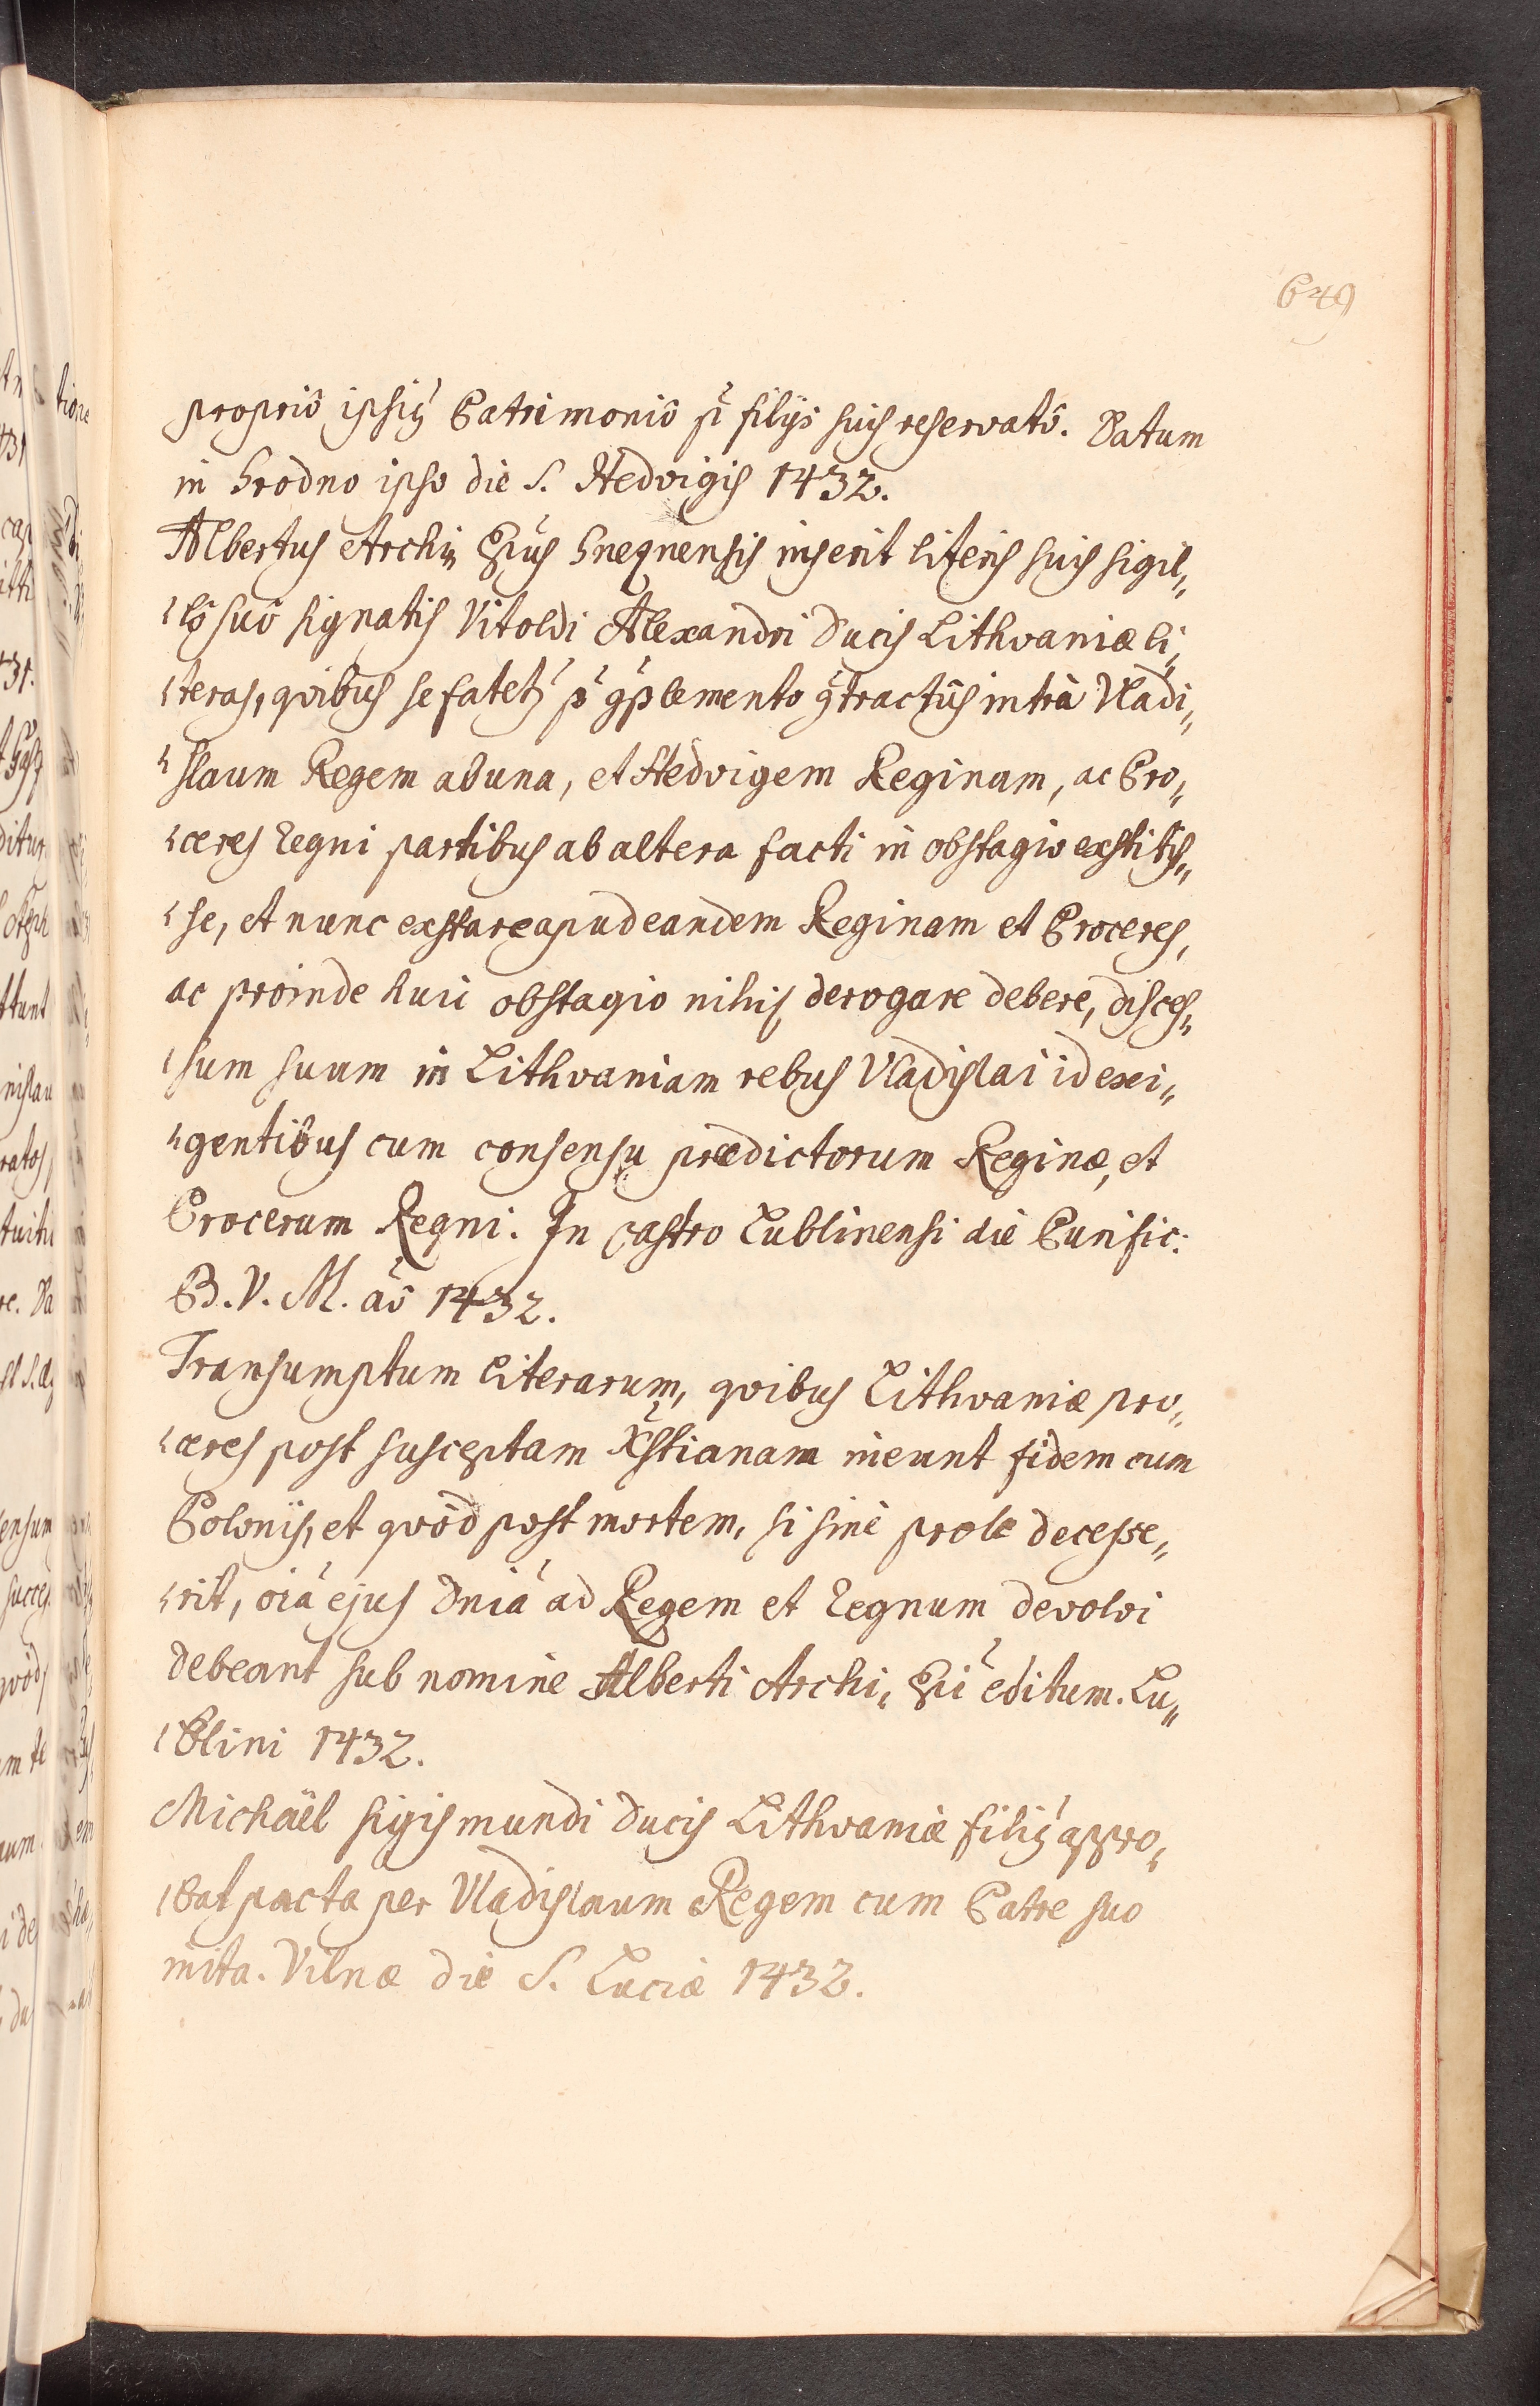 649
propriô ipsiȝ Patrimoniô p̃ filijs suis reservatô. Datum
in Grodno ipso die S. Hedvigis 1432.
Albertus Archi„ Epu̇s Gneqnensis inserit literis suis sigil„
lô suô signatis Vitoldi Alexandri Ducis Lithvaniæ li„
teras, qvibus se fatetȝ p̃ 9plemento 9tractûs intrà Vladi„
slaum Regem ab una, et Hedvigem Reginam, ac Pro„
ceres Regni partibus ab altera facti in obstagio exstitis„
se, et nunc exstare apud eandem Reginam et Proceres,
ac proinde huic obstagio nihil derogare debere, disces„
sum suum in Lithvaniam rebus Vladislai id exi„
gentibus cum consensu prædictorum Reginæ, et
Procerum Regni. In castro Lublinensi die Purific:
B. V. M. aô 1432.
Transumptum literarum, qvibus Lithvaniæ pro„
ceres post susceptam Xstianam ineunt fidem cum
Polonis, et qvòd post mortem, si sine prole decesse„
rit, oi̇a ejus Dni̇a ad Regem et Regnum devolvi
debeant sub nomine Alberti Archi„ Epi̇ editum. Lu„
blini 1432.
Michäel Sigismundi Ducis Lithvaniæ filiȝ appro„
bat pacta per Vladislaum Regem cum Patre suo
inita. Vilnæ die S. Luciæ 1432.